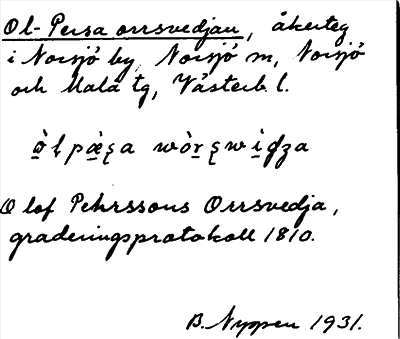 Ol-Persa orrsvedjan, åkerteg
i Norsjö by, Norsjö sn, Norsjö
och Malå tg, Västerb. l.
Olof Pehrssons Orrsvedja,
graderingsprotokoll 1810.
B. Nyppen 1931.